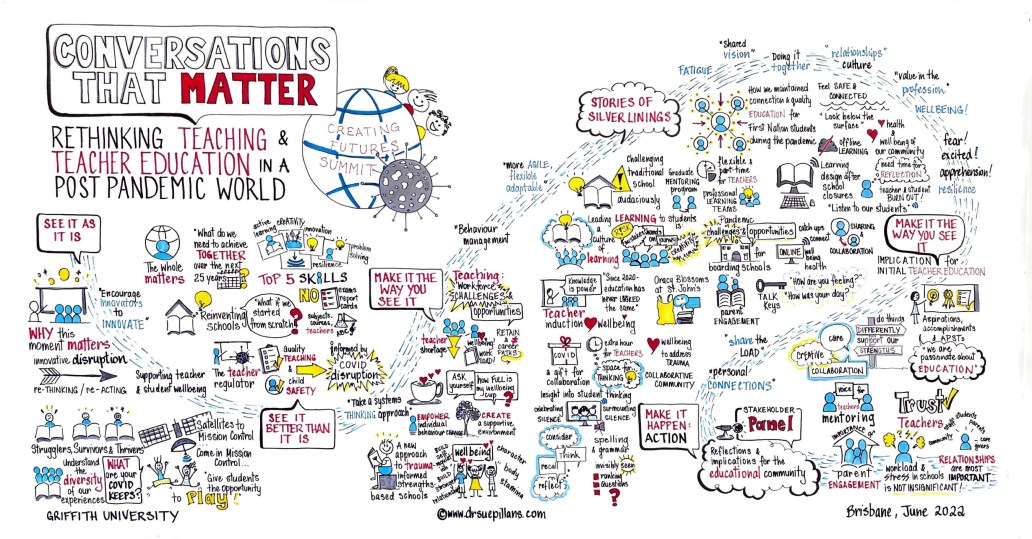 CONVERSATIONS
THAT MATTER
RETHINKING TEACHING &
TEACHER EDUCATION IN A
POST PANDEMIC WORLD
CREATING
FUTURES
SUMMIT
SEE IT AS
IT IS
The Whole
matters
"What do we
need to achieve
TOGETHER
over the next
25 years"
active
learning
CREATIVITY
innovation
problem
solving
resilience
TOP 5 SKILLS
"Encourage
Innovators
to
INNOVATE"
"Reinventing
Schools"
"What if we
started
from scratch?"
NO
exams
report
cards
subjects,
courses,
teachers
ABC
WHY this
moment matters
innovative disruption
re-THINKING / re-ACTING
The teacher
regulator
quality
TEACHING
&
child
SAFETY
informed by
COVID
disruption
Supporting teacher
& student wellbeing
SEE IT
BETTER THAN
IT IS
Strugglers, Survivors & Thrivers
Satellites to
Mission Control
Come in Mission
Control...
Understand
the
diversity
of our
experiences
WHAT
are your
COVID
KEEPS?
"Give students
the opportunity
to Play!"
GRIFFITH UNIVERSITY
MAKE IT THE
WAY YOU
SEE IT
"Behaviour
management"
Teaching:
Workforce
CHALLENGES &
opportunities
teacher
shortage
wellbeing
work
load
RETAIN
&
career
PATHS
"Take a systems
THINKING approach"
ASK
yourself
how full is
my wellbeing
cup?
EMPOWER
individual
behaviour CHANGE
CREATE
a supportive
environment
A new
approach
to trauma-
informed
strengths
based schools
well being
character
body
stamina
relationships
©www.drsuepillans.com
"More AGILE,
flexible
adaptable"
STORIES OF
SILVER LININGS
FATIGUE
"Shared
vision"
Doing it
together
"relationships"
culture
"value in the
profession"
WELLBEING!
fear!
excited!
apprehension!
resilience
How we maintained
connection & quality
EDUCATION for
First Nation students
during the pandemic
Feel SAFE &
CONNECTED
"Look below the
surface"
offline
LEARNING
health
&
well being of
our community
need time for
REFLECTION
Challenging
traditional
school
audaciously
Graduate
MENTORING
program
flexible &
part-time
for
TEACHERS
professional
LEARNING
TEAMS
Learning
design after
school
closures
teacher & student
BURN OUT!
"Listen to our students"
Leading LEARNING to students
a
culture
of
learning
is:
Pandemic
challenges & opportunities
for
boarding schools
catch ups
connect
ONLINE
well
being
health
SHARING
&
COLLABORATION
MAKE IT THE
WAY YOU SEE
IT
IMPLICATION for
INITIAL TEACHER EDUCATION
Knowledge
is power
"Since 2020-
education has
never looked
the same"
Teacher
induction
Wellbeing
Oracy Blossoms
at St. John's
parent
ENGAGEMENT
TALK
Keys
"How are you feeling?"
"How was your day?"
COVID
a gift for
collaboration
extra hour
for TEACHERS
space for
THINKING
wellbeing
to address
TRAUMA
COLLABORATIVE
COMMUNITY
"share the
LOAD"
"personal
CONNECTIONS"
Insight into student thinking
celebrating
SILENCE
surrounding
SILENCE
consider
think
recall
reflect
spelling
&
grammar
invisibly seen
ranking
Questions
?
MAKE IT
HAPPEN:
ACTION
STAKEHOLDER
Panel
Reflections &
implications for the
educational community
care
creative
COLLABORATION
do things
DIFFERENTLY
support our
STRENGTHS
Aspirations,
accomplishments
& APSTs
"we are
passionate about
EDUCATION"
voice
for
teachers
mentoring
Trust
Teachers
staff
community
students
parents
care
givers
IMPORTANCE of
parent
ENGAGEMENT
workload &
stress in schools
is NOT INSIGNIFICANT!
RELATIONSHIPS
are most
IMPORTANT
Brisbane, June 2022